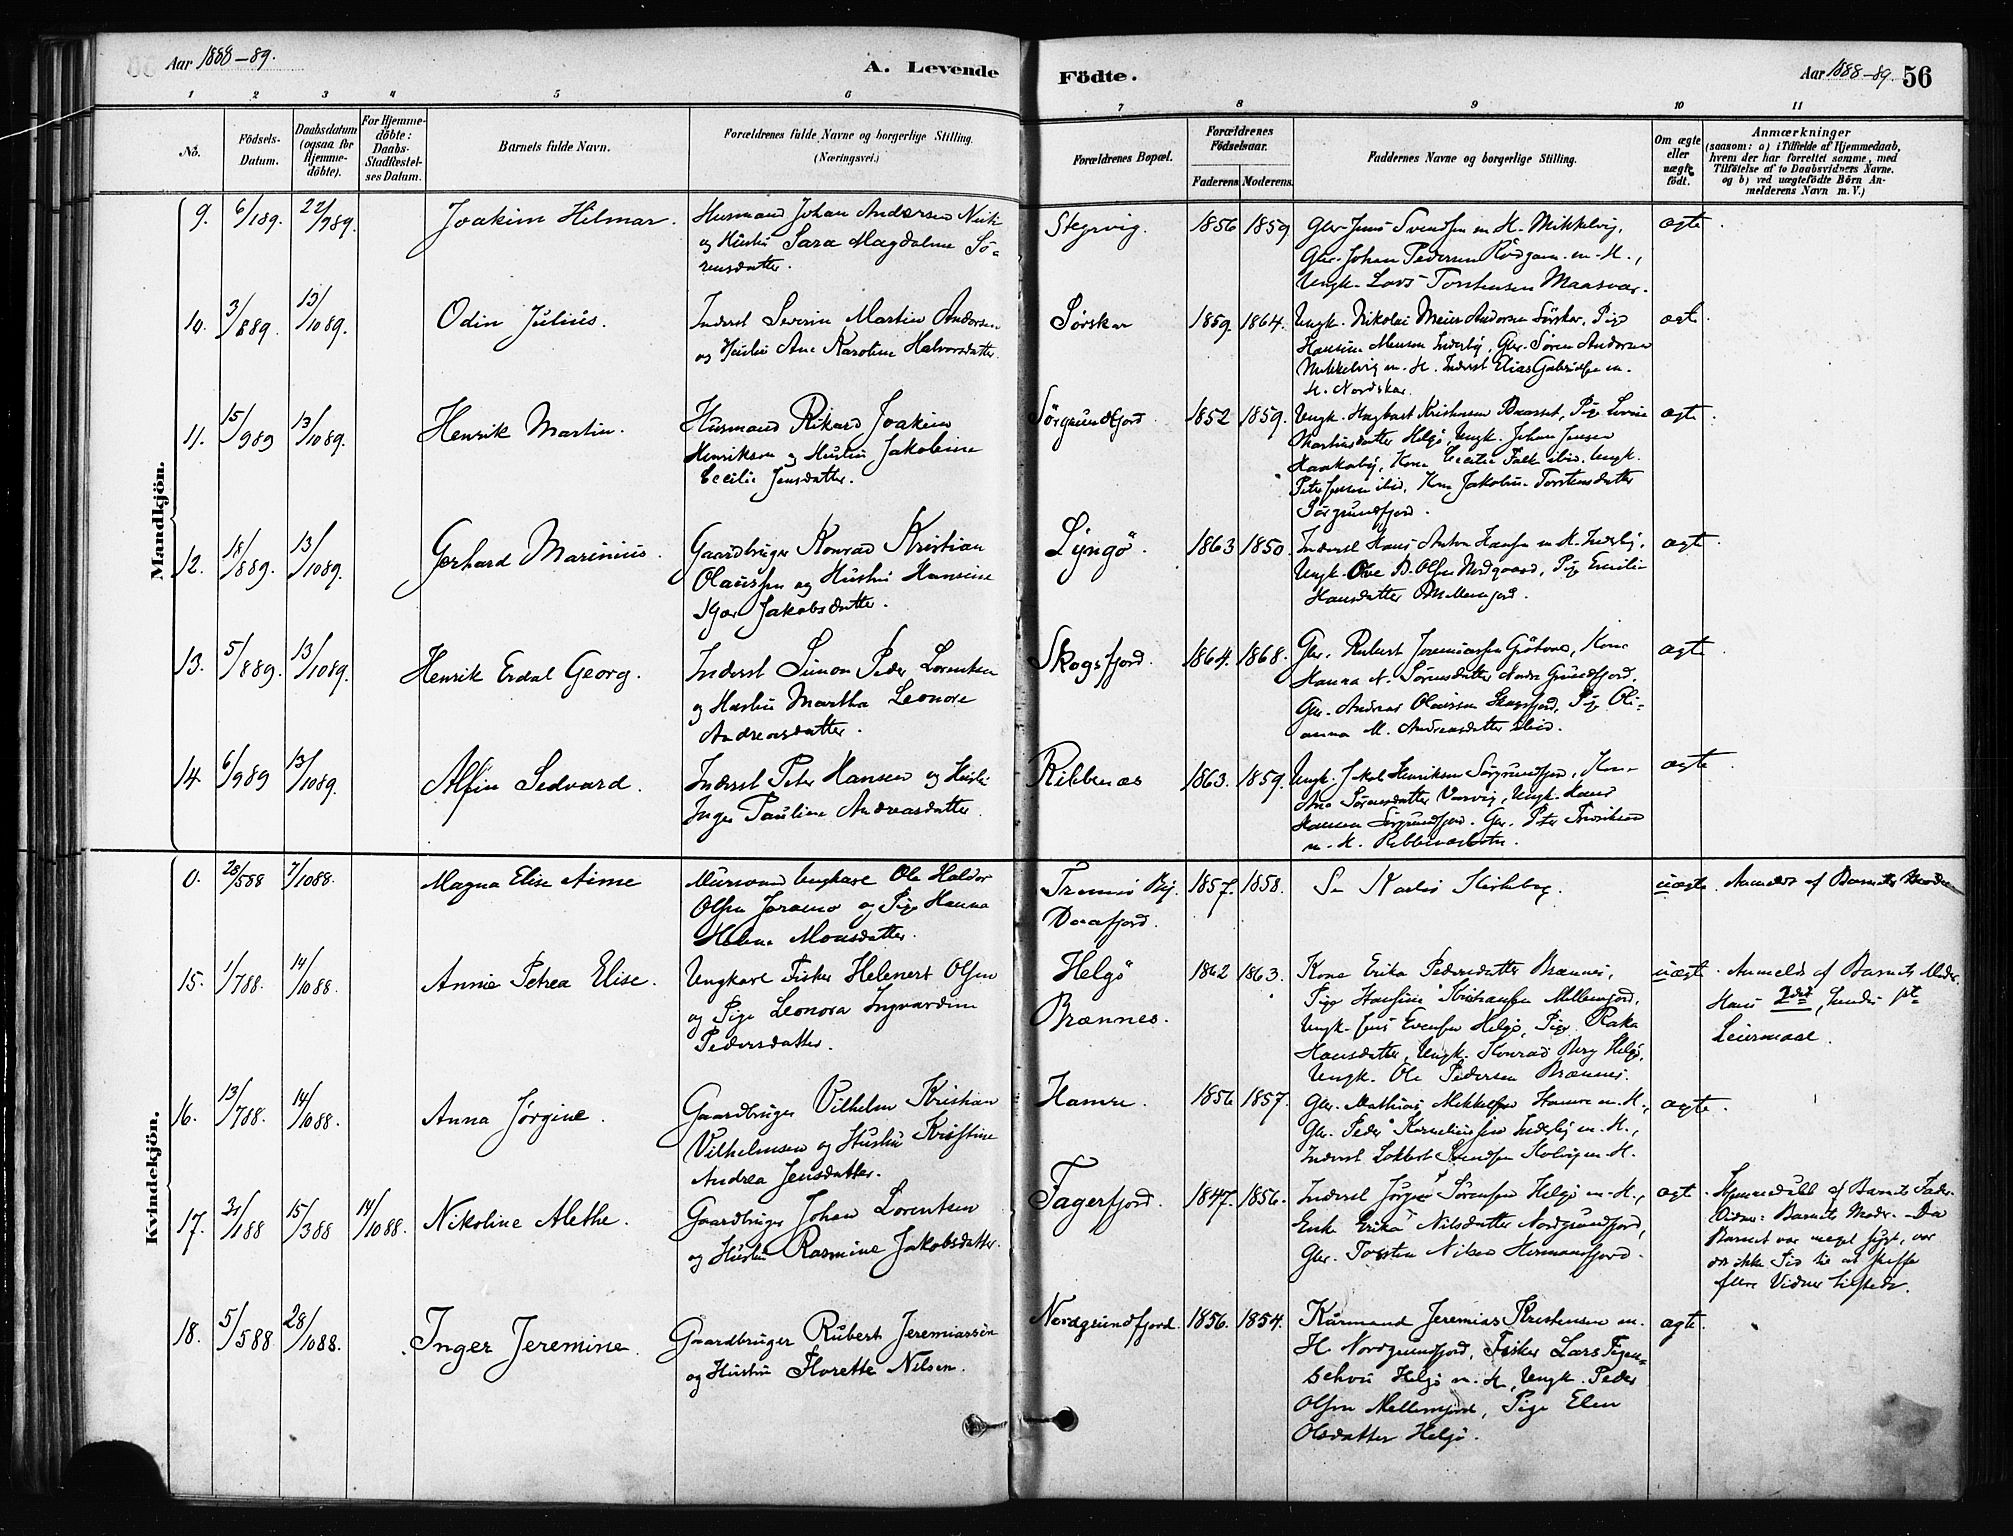 Aar 1888-89.
A. Levende
Födte.
Aar 1888-89. 56
1 2 3 4 5 6 7 8 9 10 11
Nô.
Födsels-Datum.
Daabsdatum (ogsaa for Hjemme-döbte).
For Hjemme-döbte: Daabs-Stadfæstel-ses Datum.
Barnets fulde Navn.
Forældrenes fulde Navne og borgerlige Stilling.
(Næringsvei.)
Forældrenes Bopæl.
Forældrenes Födselsaar.
Faderens Moderens
Faddernes Navne og borgerlige Stilling.
Om ægte eller uægte födt.
Anmærkninger
(saasom: a) i Tilfælde af Hjemmedaab,
hvem der har forrettet samme, med
Tilföielse af to Daabsvidners Navne.
og b) ved uægtefödte Börn An-
melderens Navn m. V.)
Mandkjön.
9. 6/189. 22/989. Joakim Hilmar. Husmand Johan Andersen
og Hustru Sara Magdalena Sö-
rensdatter.
Stegvig. 1856 1859 Gbr. Jens Svendsen m. H. Mikkelvig,
Gbr. Johan Pedersen m. H.,
Ungk. Lars Torstensen Maasvær.
ægte
10. 3/889. 13/1089. Odin Julius. Inderst Severin Martin Andersen
og Hustru Ane Karoline Halvorsdatter
Sörskar 1859. 1864. Ungk. Nikolai Meier Andersen Sörskar, Pige
Hansine Monsen Inderby, Gbr. Sören Andersen
Mikkelvig m. H. Inderst Elias Gabrielsen m.
H. Nordskar.
ægte
11. 15/989 13/1089. Henrik Martin. Husmand Rikard Joakim
Henriksen og Hustru Jakobine
Cecilie Jensdatter.
Sörgrundfjord. 1852 1859. Ungk. Hagbart Kristensen
Martinsdatter Helgö, Ungk. Johan Jensen
Kone Cecilie Falk ibid. Ungk.
Peter Jensen ibid, Kone Jakobine Torstensdatter
Sörgrundfjord.
ægte
12. 18/889. 13/1089. Gerhard Marinius. Gaardbruger Konrad Kristian
Olaussen og Hustru Hansine
Igær Jakobsdatter.
Lyngö. 1863 1850. Inderst Hans Anton Hansen m. H. Inderby,
Ungk. Ole B. Olsen Nordgaard, Pige Emilie
Hansdatter Mellemjord.
ægte
13. 5/889. 13/1089. Henrik Erdal Georg. Inderst Simon Peder Lorentsen
og Hustru Martha Leonore
Andreasdatter.
Skogsfjord. 1864. 1868. Gbr. Rubert Jeremiassen Kone
Hanna N. Sörensdatter Nordre Grundfjord,
Gbr. Andreas Olaussen Skogsfjord, Pige Oli-
anna M. Andreasdatter ibid.
ægte
14. 6/989 13/1089. Alfin Sedvard. Inderst Peter Hansen og Hustru
Inger Pauline Andreasdatter.
Ribbenæs 1863. 1859. Ungk. Jakob Henriksen Sörgrundfjord, Kone
Ane Sörensdatter Ungk. Hans
Hansen Sörgrundfjord. Gbr. Peter
m. H.
ægte
Kvindekjön.
0. 28/588 7/1088. Magna Elise Aime Murmand Ungkarl Ole Haldor
Olsen og Pige Hanna
Helena Monsdatter.
Tromsö By.
Doxafjord.
1857. 1858. Se
uægte. Anmeldt af Barnets Moder
15. 1/788. 14/1088. Annie Petrea Elise. Ungkarl Fisker Helenert Olsen
og Pige Leonora Ingvardine
Pedersdatter.
Helgö
Brænnes.
1862 1863. Kone Erika Pedersdatter Brænnes,
Pige Hansine Kristiansen Mellemjord,
Ungk. Jens Evensen Helgö, Pige Raka
Hansdatter, Ungk. Konrad Berg Helgö,
Ungk. Ole Pedersen Brænnes.
uægte. Anmeldt af Barnets Moder.
Hans 2det, hendes 1ste
Leiermaal.
16. 13/788. 14/1088. Anna Jörgine. Gaardbruger Vilhelm Kristian
Vilhelmsen og Hustru Kristine
Andrea Jensdatter.
Hamre. 1856 1857. Gbr. Mathias Mikkelsen Hamre m. H.,
Gbr. Peder Korneliussen Inderby m. H.,
Inderst Lokkert Svendsen m. H.
ægte.
17. 31/188 15/388 14/1088. Nikoline Alethe. Gaardbruger Johan Lorentsen
og Hustru Rasmine Jakobsdatter.
Fagerfjord. 1847. 1856. Inderst Jörgen Sörensen Helgö m. H.,
Enke Erika Nilsdatter Nordgrundfjord,
Gbr. Torsten Nilsen Hermansfjord.
ægte Hjemmedöbt af Barnets Fader.
Vidner: Barnets Moder. Da
Barnet var meget sygt, var
der ikke Tid til at skaffe
flere Vidner tilstede.
18. 5/588 28/1088. Inger Jeremine. Gaardbruger Rubert Jeremiassen
og Hustru Florette Nilsen.
Nordgrundfjord. 1856. 1854. Kårmand Jeremias Kristensen m.
H. Nordgrundfjord, Fisker Lars Figen-
schou Helgö m. H, Ungk. Peder
Olsen Mellemjord, Pige Elen
Olsdatter Helgö.
ægte.